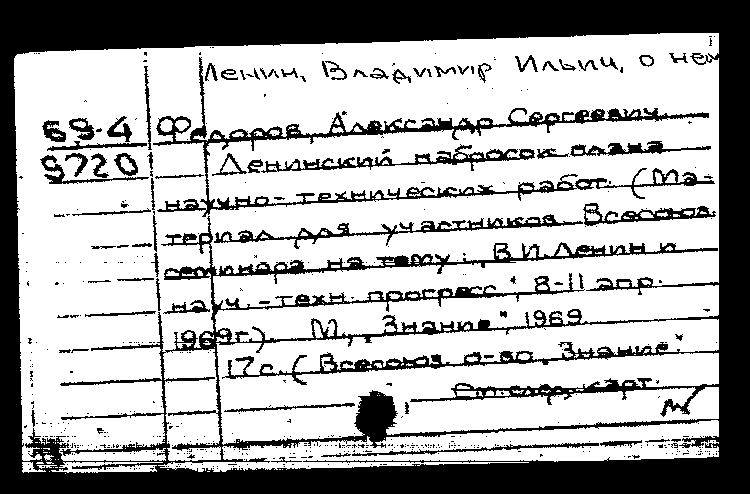 Ленин, Владимир Ильич, о нем
69-4 Федоров, Александр Сергеевич.
9720 Ленинский набросок плана
научно-технических работ. (Ма-
териал для участников Всесоюз.
семинара на тему: „В.И. Ленин и
науч.-техн. прогресс", 8-11 апр.
1969г.). М., „Знание", 1969.
17с. (Всесоюз. о-во „Знание".
См. след. карт.